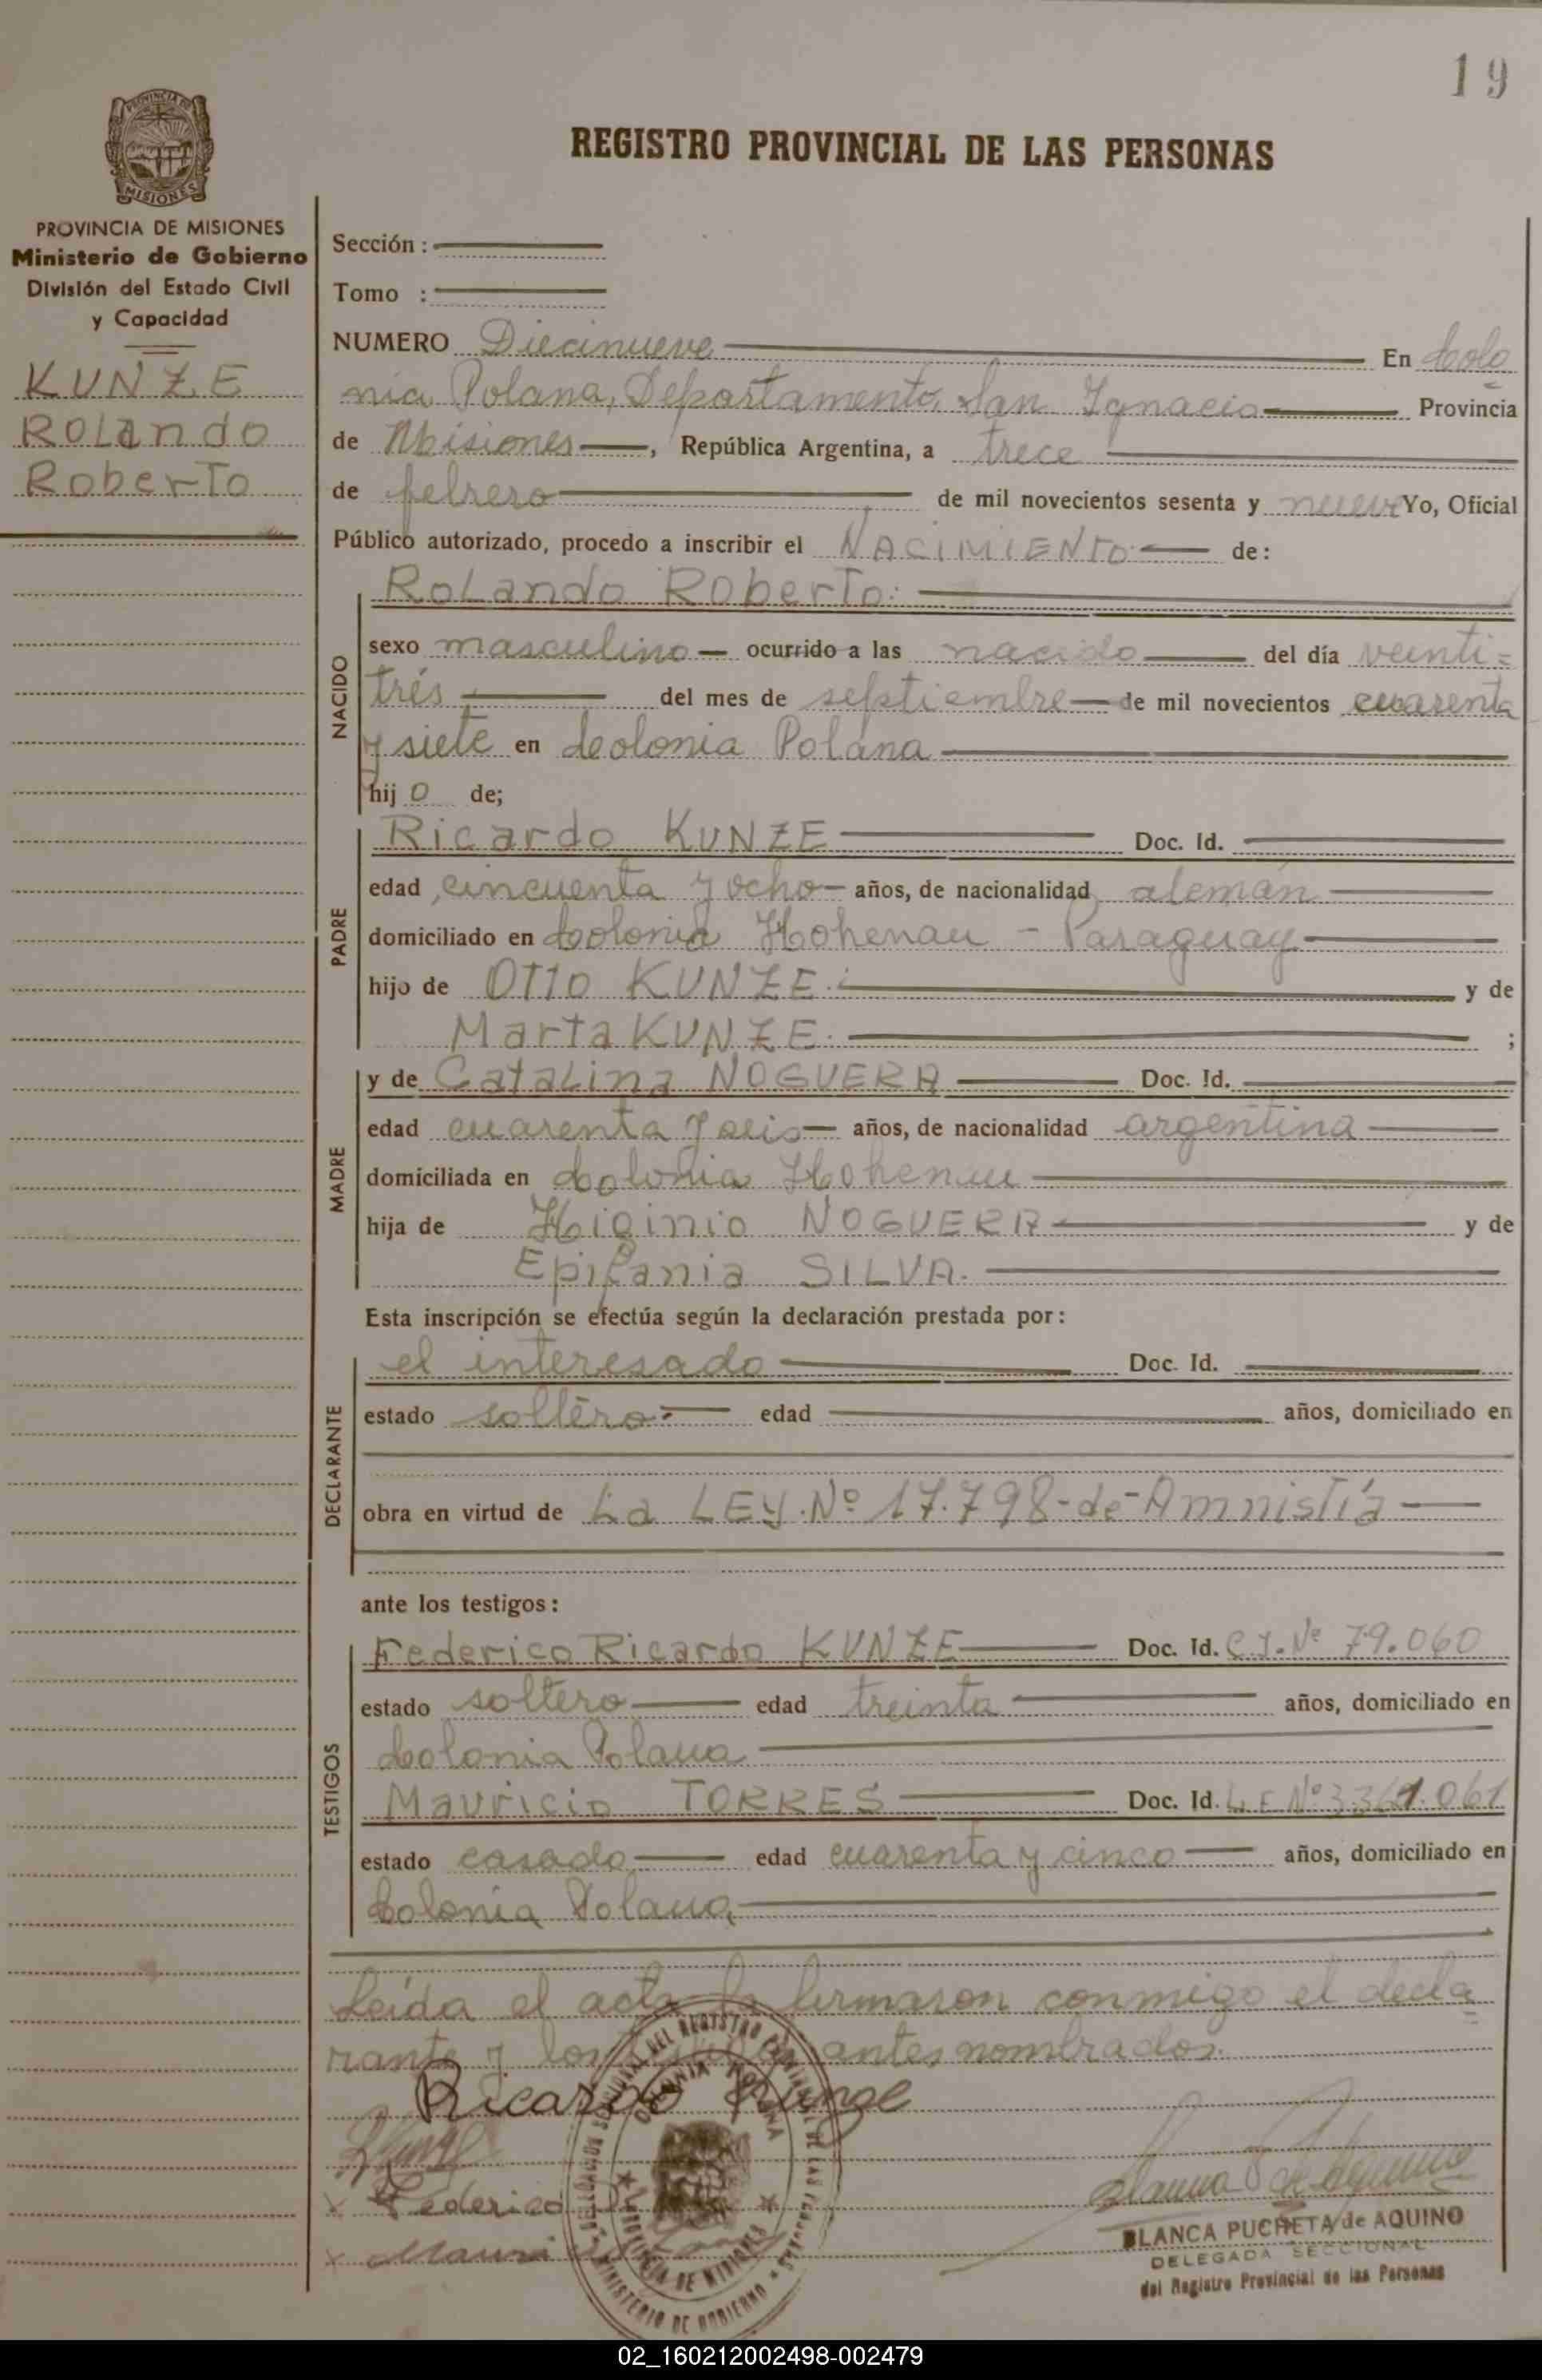 19
REGISTRO PROVINCIAL DE LAS PERSONAS
PROVINCIA DE MISIONES
PROVINCIA DE MISIONES
Ministerio de Gobierno
División del Estado Civil
y Capacidad
KUNZE
ROLando
Roberto
Sección :
Tomo :
NUMERO Diecinueve En Colo
nia Polana, Departamento San Ignacio Provincia
de Misiones, República Argentina, a trece
de febrero de mil novecientos sesenta y nueve Yo, Oficial
Público autorizado, procedo a inscribir el NACIMIENTO de:
RoLando Roberto.
NACIDO
sexo masculino ocurrido a las nacido del día veinti=
trés del mes de septiembre de mil novecientos cuarenta
y siete en Colonia Polana
hijo de;
PADRE
Ricardo KUNZE Doc. Id.
edad cincuenta y ocho años, de nacionalidad alemán
domiciliado en Colonia Hohenau - Paraguay
hijo de OTTO KUNZE. y de
Marta KUNZE. ;
MADRE
y de Catalina NOGUERA Doc. Id.
edad cuarenta y seis años, de nacionalidad argentina
domiciliada en Colonia Hohenau
hija de Higinio NOGUERA y de
Epifania SILVA.
Esta inscripción se efectúa según la declaración prestada por:
DECLARANTE
el interesado Doc. Id.
estado soltero edad años, domiciliado en
obra en virtud de La LEY.Nº 17.798-de-Amnistía
ante los testigos:
TESTIGOS
Federico Ricardo KUNZE Doc. Id. C.I.Nº 79.060
estado soltero edad treinta años, domiciliado en
Colonia Polana
Mauricio TORRES Doc. Id. L.E Nº 3.361.061
estado casado edad cuarenta y cinco años, domiciliado en
Colonia Polana
Leída el acta la firmaron conmigo el decla
rante y los antes nombrados.
Ricardo Kunze
x Federico
x Mauri
BLANCA PUCHETA de AQUINO
DELEGADA SECCIONAL
del Registro Provincial de las Personas
MINISTERIO DE GOBIERNO
PROVINCIA DE MISIONES
02_160212002498-002479